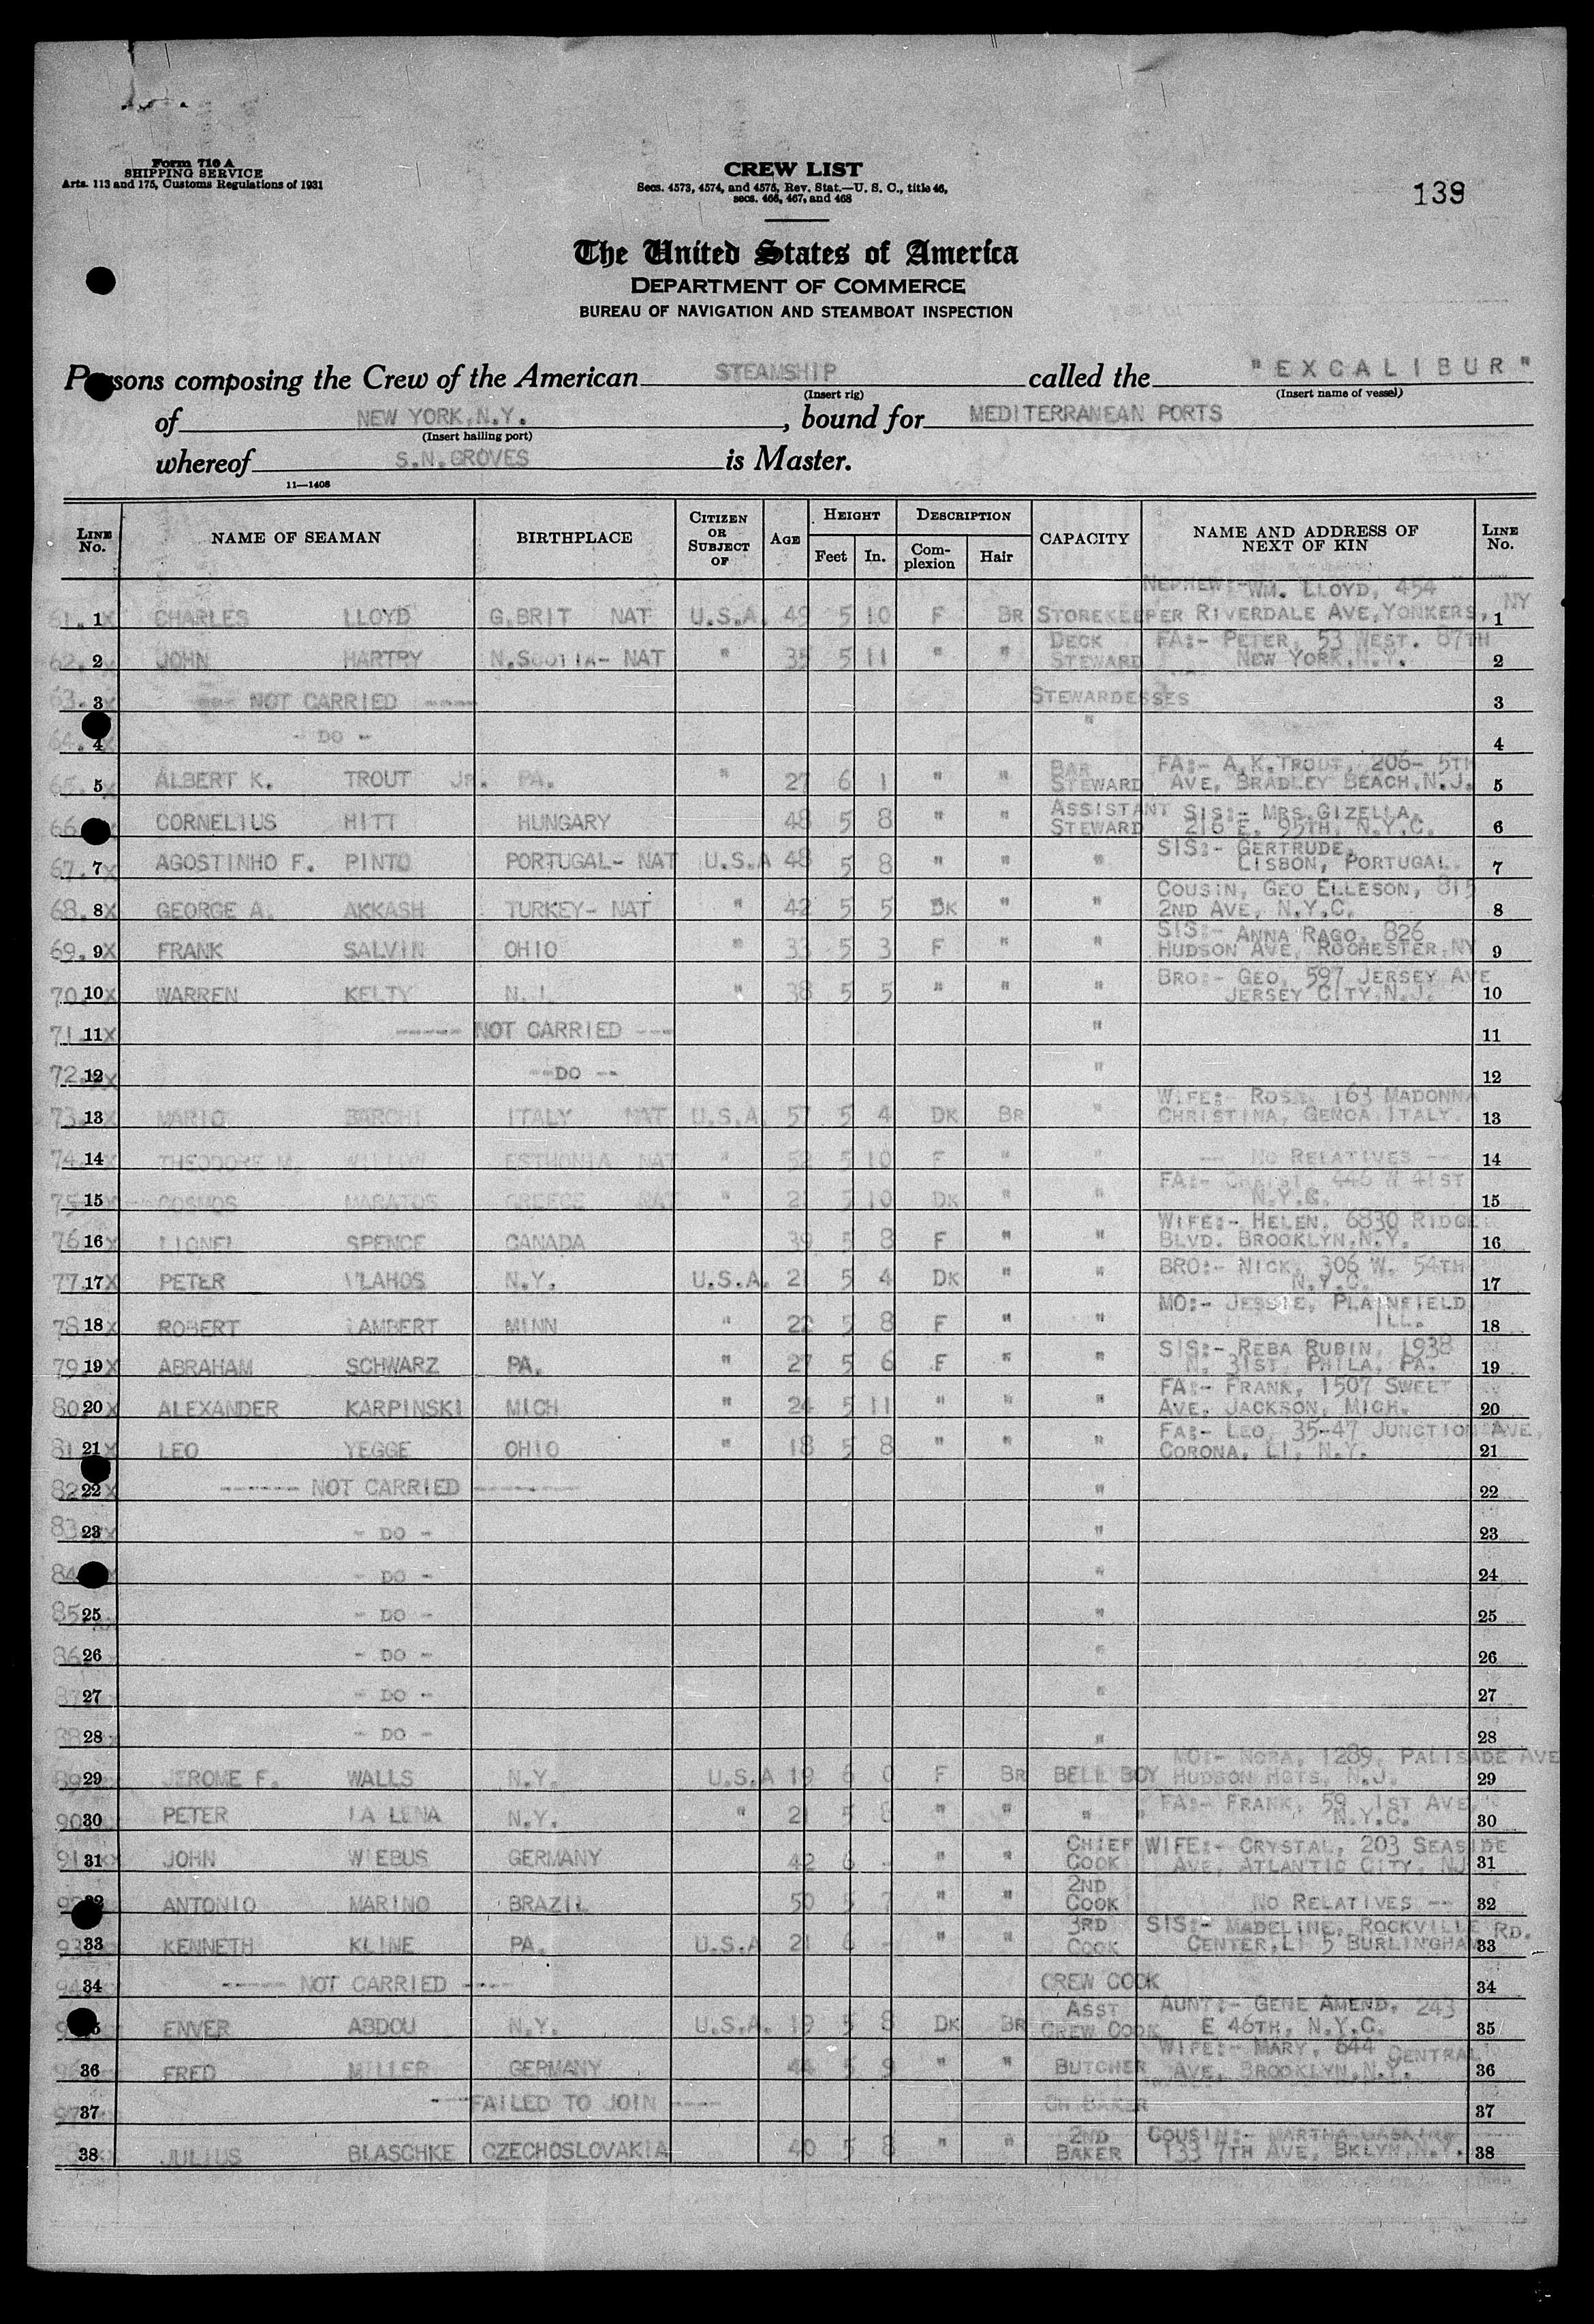 Form 710 A
SHIPPING SERVICE
Arts. 113 and 175, Customs Regulations of 1931
CREW LIST
Secs. 4573, 4574, and 4575, Rev. Stat.—U. S. C., title 46,
secs. 466, 467, and 468
139
The United States of America
DEPARTMENT OF COMMERCE
BUREAU OF NAVIGATION AND STEAMBOAT INSPECTION
Persons composing the Crew of the American STEAMSHIP called the "EXCALIBUR"
(Insert rig) (Insert name of vessel)
of NEW YORK,N.Y. , bound for MEDITERRANEAN PORTS
(Insert hailing port)
whereof S.N.GROVES is Master.
11—1408
LINE No. NAME OF SEAMAN BIRTHPLACE CITIZEN OR SUBJECT OF AGE HEIGHT Feet In. DESCRIPTION Complexion Hair CAPACITY NAME AND ADDRESS OF NEXT OF KIN LINE No.
NEPHEW:-WM. LLOYD, 454
61. X 1 CHARLES LLOYD G.BRIT NAT U.S.A. 49 5 10 F BR STOREKEEPER RIVERDALE AVE,YONKERS, NY 1
DECK FA:- PETER, 53 WEST. 87TH
62. X 2 JOHN HARTRY N.SCOTIA- NAT " 35 5 11 " " STEWARD NEW YORK,N.Y. 2
63. X 3 --- NOT CARRIED ---- STEWARDESSES 3
64. 4 - DO - " 4
BAR FA:- A.K.TROUT, 206- 5TH
65. X 5 ALBERT K. TROUT JR. PA. " 27 6 1 " " STEWARD AVE, BRADLEY BEACH,N.J. 5
ASSISTANT SIS:- MRS.GIZELLA,
66 CORNELIUS HITT HUNGARY 48 5 8 " " STEWARD 216 E. 95TH, N.Y.C. 6
SIS:- GERTRUDE,
67. X 7 AGOSTINHO F. PINTO PORTUGAL- NAT U.S.A 48 5 8 " " " LISBON, PORTUGAL. 7
COUSIN, GEO ELLESON, 815
68. 8X GEORGE A. AKKASH TURKEY- NAT " 42 5 5 DK " " 2ND AVE, N.Y.C. 8
SIS:- ANNA RAGO, 826
69. 9X FRANK SALVIN OHIO " 33 5 3 F " " HUDSON AVE, ROCHESTER,NY 9
BRO:- GEO, 597 JERSEY AVE
70. 10X WARREN KELTY N.J. " 38 5 5 " " " JERSEY CITY,N.J. 10
71. 11X ----- NOT CARRIED --- " 11
72. 12X --DO -- " 12
WIFE:- ROSA, 163 MADONNA
73. 13X MARIO BARCHI ITALY NAT U.S.A. 57 5 4 DK BR " CHRISTINA, GENOA ITALY. 13
74. 14 THEODORE M. WILLOW ESTHONIA NAT " 52 5 10 F " " -- NO RELATIVES -- 14
FA:- 446 W 41ST
75 15 COSMOS MARATOS GREECE NAT " 21 5 10 DK " " N.Y.C. 15
WIFE:- HELEN, 6830 RIDGE
76 16X LIONEL SPENCE CANADA 39 5 8 F " " BLVD. BROOKLYN,N.Y. 16
BRO:- NICK, 306 W. 54TH
77. 17X PETER VLAHOS N.Y. U.S.A. 21 5 4 DK " " N.Y.C. 17
MO:- JESSIE, PLAINFIELD
78 18X ROBERT LAMBERT MINN " 22 5 8 F " " ILL. 18
SIS:- REBA RUBIN, 1938
79. 19X ABRAHAM SCHWARZ PA. " 27 5 6 F " " N. 31ST, PHILA, PA. 19
FA:- FRANK, 1507 SWEET
80 20X ALEXANDER KARPINSKI MICH " 24 5 11 " " " AVE, JACKSON, MICH. 20
FA:- LEO, 35-47 JUNCTION AVE,
81 21X LEO YEGGE OHIO " 18 5 8 " " " CORONA, LI, N.Y. 21
82 22X ------ NOT CARRIED -------- " 22
83. 23X - DO - " 23
84 - DO - " 24
85. 25 - DO - " 25
86 26 - DO - " 26
27 - DO - " 27
28 - DO - " 28
MO:- NORA, 1289, PALISADE AVE
89 29 JEROME F. WALLS N.Y. U.S.A 19 6 0 F BR BELL BOY HUDSON HGTS, N.J. 29
FA:- FRANK, 59 1ST AVE,
90 30 PETER LA LENA N.Y. " 21 5 8 " " " " N.Y.C. 30
CHIEF WIFE:- CRYSTAL, 203 SEASIDE
91 31 JOHN WIEBUS GERMANY 42 6 - " " COOK AVE, ATLANTIC CITY, NJ 31
2ND
92 32 ANTONIO MARINO BRAZIL 50 5 7 " " COOK NO RELATIVES -- 32
3RD SIS:- MADELINE, ROCKVILLE RD.
93 33 KENNETH KLINE PA. U.S.A 21 6 - " " COOK CENTER,LI 5 BURLINGHAM 33
94 34 ----- NOT CARRIED ---- CREW COOK 34
ASST AUNT:- GENE AMEND, 243
ENVER ABDOU N.Y. U.S.A. 19 5 8 DK BR CREW COOK E 46TH, N.Y.C. 35
WIFE:- MARY, 644 CENTRAL
36 FRED MILLER GERMANY 44 5 9 " " BUTCHER AVE, BROOKLYN,N.Y. 36
97 37 ---FAILED TO JOIN ---- CH BAKER 37
2ND COUSIN:- MARTHA
38 JULIUS BLASCHKE CZECHOSLOVAKIA 40 5 8 " " BAKER 133 7TH AVE, BKLYN,N.Y. 38